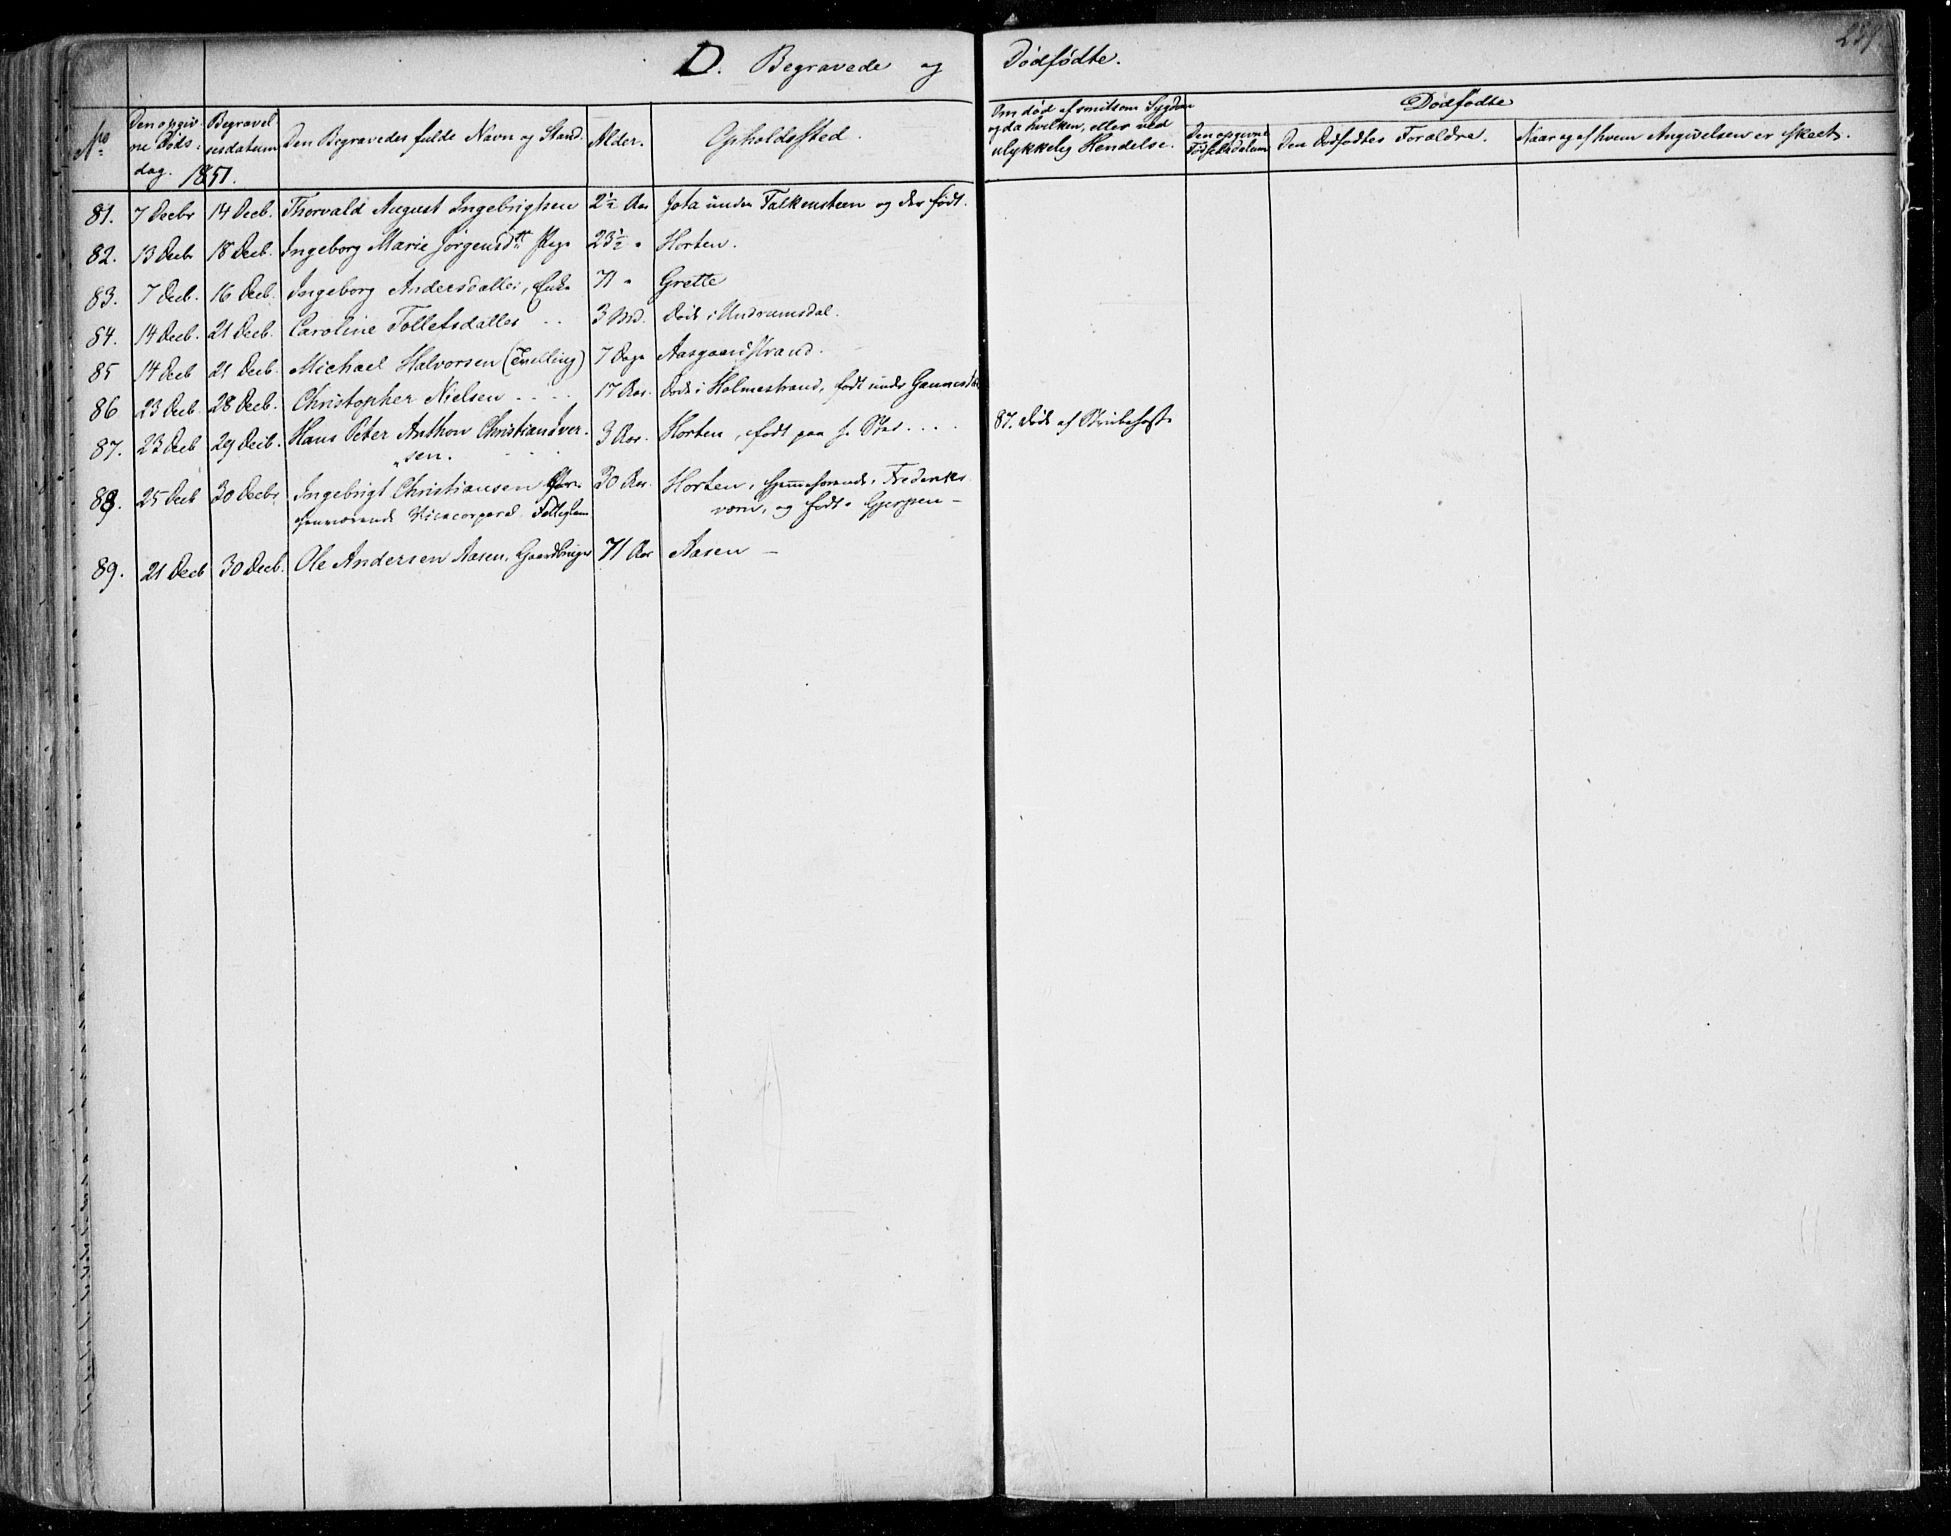 259
D. Begravede og Dødfødte.
No
Den opgivne Dødsdag.
Begravelsesdatum
1851.
Den Begravedes fulde Navn og Stand.
Alder.
Opholdssted.
Om død af smitsom Sygdom
og da hvilken, eller ved
ulykkelig Hendelse.
Dødfødte
Den opgivne Fødselsdatum
Den Dødfødtes Forældre.
Naar og af hvem Angivelsen er skeet.
81. 7 Decbr 14 Decb. Thorvald August Ingebrigtsen 2½ Aar Jota under Falkensteen og der født.
82. 13 Decbr 18 Decb. Ingeborg Marie Jörgensdtr Pige 23½ " Horten.
83. 7 Decb. 16 Decb. Ingeborg Andersdatter, Enke 71 " Grette
84. 14 Decb. 21 Decb. Caroline Tollefsdatter . . 3 Md. Døde i Undrumsdal.
85 14 Decb 21 Decb. Michael Halvorsen (Tvilling) 7 Dage Aasgaardstrand.
86 23 Decb. 28 Decb. Christopher Nielsen . . . . 17 Aar. Døde i Holmestrand, født under
87. 23 Decb 29 Decb. Hans Peter Anthon Christian Iver- 3 Aar. Horten, født paa s. Sted . . . . 87. Døde af Strubehoste
"sen. . . .
88. 25 Decb 30 Decbr Ingebrigt Christiansen 30 Aar. Horten, hjemmehørende i Frederiks-
Vicecorporal værn, og født i Gjerpen –
89. 21 Decb 30 Decb. Ole Andersen Aasen, Gaardbruger 71 Aar Aasen –